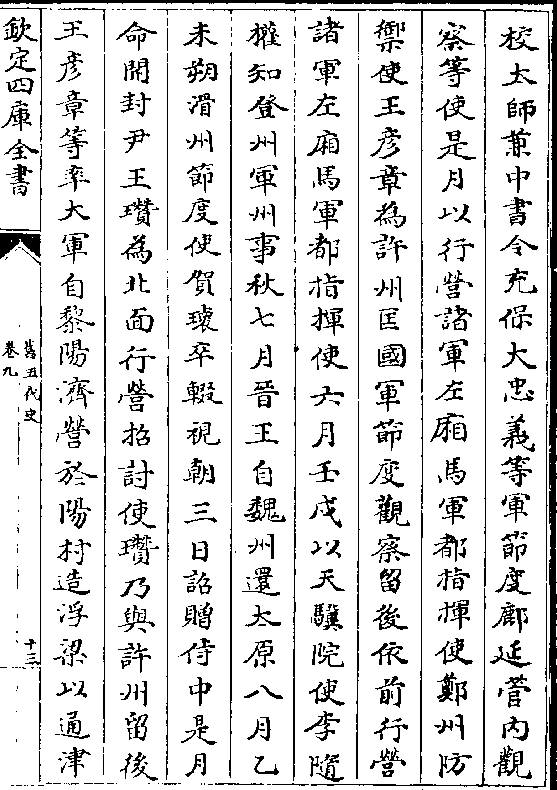 校太師兼中書令充保大忠義等軍節度鄜延管内觀
察等使是月以行營諸軍左廂馬軍都指揮使鄭州防
禦使王彦章為許州匡國軍節度觀察留後依前行營
諸軍左廂馬軍都指揮使六月壬戌以天驥院使李隨
權知登州軍州事秋七月晉王自魏州還太原八月乙
未朔滑州節度使賀瓌卒輟視朝三日詔贈侍中是月
命開封尹王瓚為北面行營招討使瓚乃與許州留後
王彦章等率大軍自黎陽濟營於陽村造浮梁以通津
欽定四庫全書
舊五代史
卷九
十三